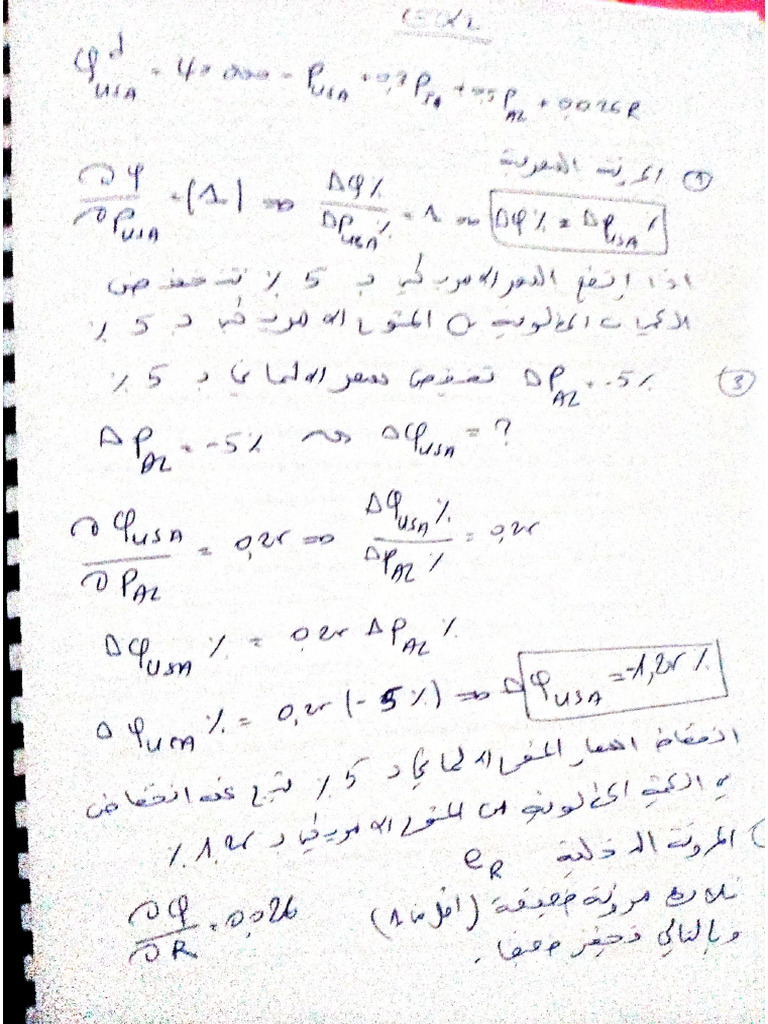 EX2
φᵈ_USA = 40 000 - P_USA + 0,7P + P_AL + 0,026R
① المرونة السعرية
∂φ/∂P_USA = (1) ⇒ Δφ%/ΔP_USA% = 1 ⇒ Δφ% = ΔP_USA%
اذا ارتفع السعر الامريكي ب 5 % تنخفض
الكميات المطلوبة من المنتوج الامريكي ب 5 %
③ ΔP_AL = -5% تخفيض سعر الالماني ب 5 %
ΔP_AL = -5% ⇒ Δφ_USA = ?
∂φ_USA/∂P_AL = 0,25 ⇒ Δφ_USA%/ΔP_AL% = 0,25
Δφ_USA % = 0,25 ΔP_AL %
Δφ_USA % = 0,25 (-5%) ⇒ Δφ_USA = -1,25 %
انخفاض اسعار المنتوج الالماني ب 5 % ينتج عنه انخفاض
في الكمية المطلوبة من المنتوج الامريكي ب 1,25 %
المرونة الدخلية e_R
∂φ/∂R = 0,026 مرونة ضعيفة (اقل من 1)
وبالتالي